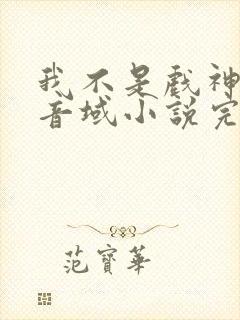 我不是戲神
音域小說完
范寶華